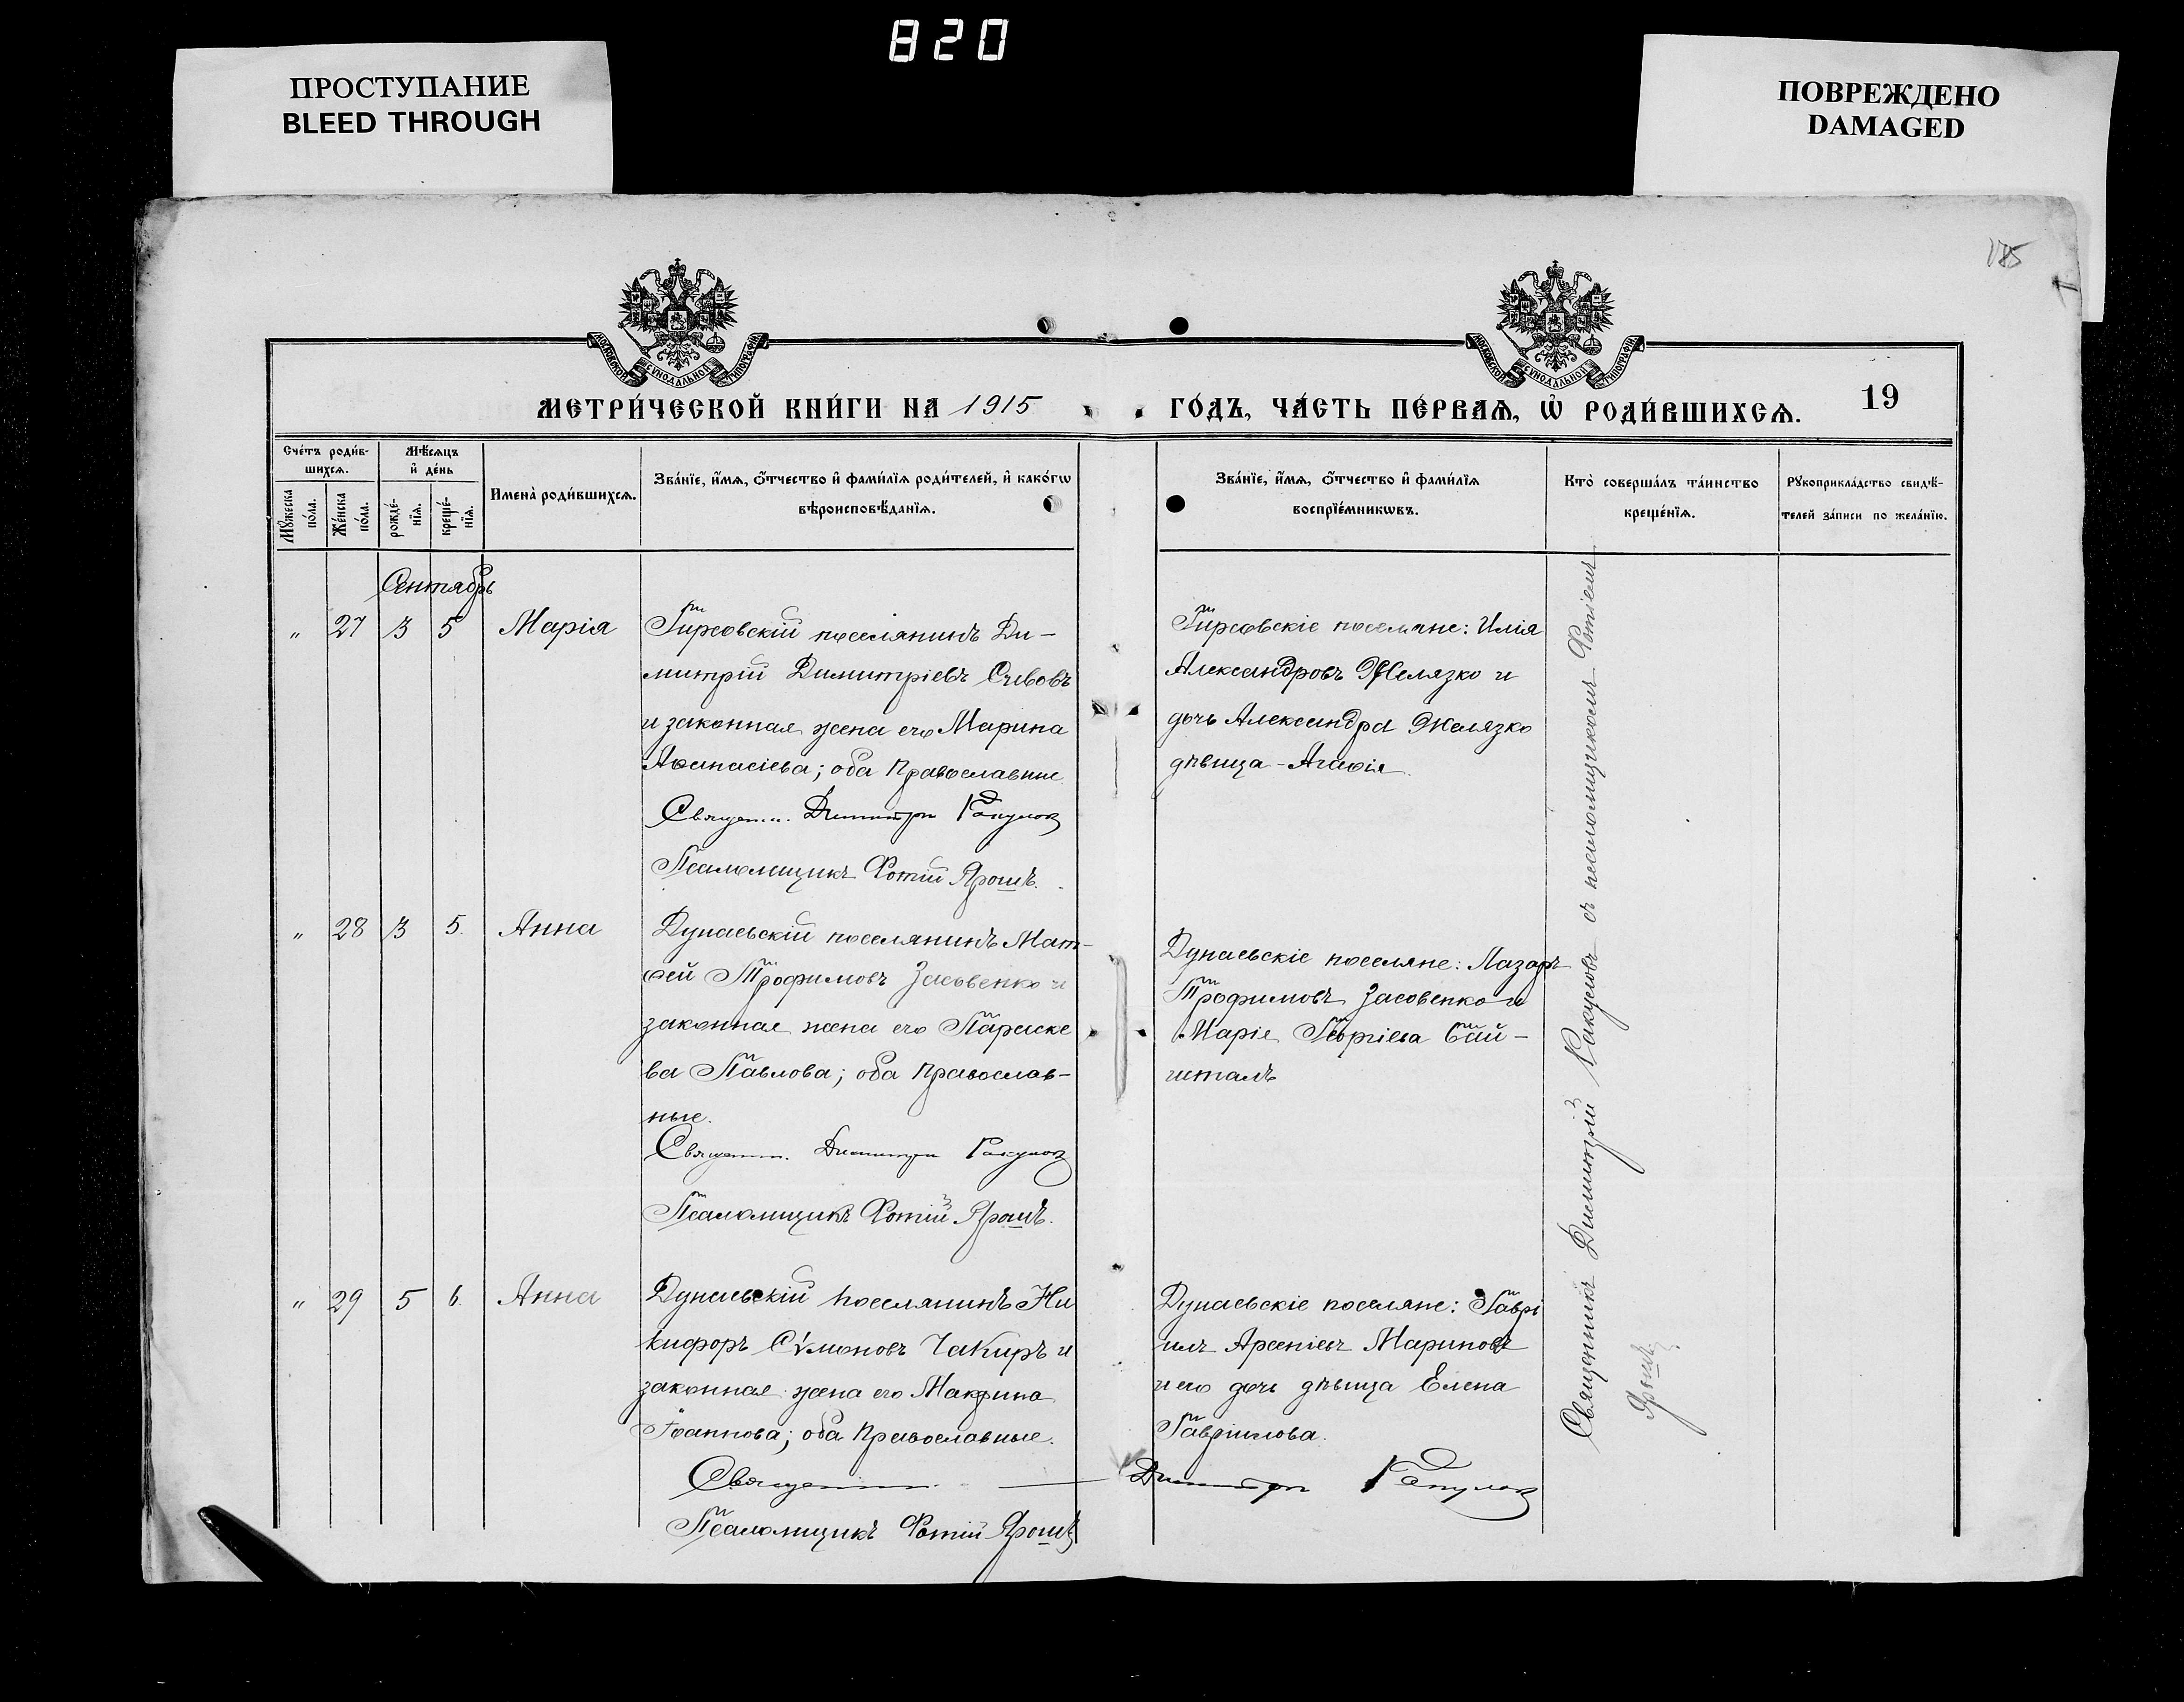 820
ПРОСТУПАНИЕ
BLEED THROUGH
ПОВРЕЖДЕНО
DAMAGED
185
МОСКОВСКОЙ СѴНОДАЛЬНОЙ ТИПОГРАФІИ
МОСКОВСКОЙ СѴНОДАЛЬНОЙ ТИПОГРАФІИ
МЕТРИ́ЧЕСКОЙ КНИ́ГИ НА 1915 ГО́ДЪ, ЧА́СТЬ ПЕ́РВАѦ, Ѡ҆ РОДИ́ВШИХСѦ. 19
Сче́тъ роди́в-
шихсѧ.
Мꙋ́жеска
по́ла.
Же́нска
по́ла.
Мѣ́сѧцъ
и҆ де́нь
рожде́-
нїѧ.
креще́-
нїѧ.
Имена̀ роди́вшихсѧ.
Зва́нїе, и҆́мѧ, ѻ҆́тчество и҆ фами́лїѧ роди́телей, и҆ како́гѡ
вѣроисповѣ́данїѧ.
Зва́нїе, и҆́мѧ, ѻ҆́тчество и҆ фами́лїѧ
воспрїе́мникѡвъ.
Кто̀ соверша́лъ та́инство
креще́нїѧ.
Рꙋкоприкла́дство свидѣ́-
телей за́писи по жела́нїю.
Сентябрь
" 27 3 5 Марія
Гирсовскій поселянинъ Ди-
митрій Димитріевъ Сивовъ
и законная жена его Марина
Аѳанасіева; оба православные
Священ... Димитрій Какулов
Псаломщикъ Фотій Ярошъ.
Гирсовскіе поселяне: Илія
Александровъ Желязко и
дочь Александра Желязко
дѣвица - Агаѳія.
" 28 3 5. Анна
Дунаевскій поселянинъ Мат-
ѳей Трофимовъ Засовенко и
законная жена его Параске
ва Павлова; оба православ-
ные.
Священн. Димитрій Какулов
Псаломщикъ Фотій Ярошъ.
Дунаевскіе поселяне: Лазарь
Трофимовъ Засовенко и
Марія Георгіева
" 29 5 6 Анна
Дунаевскій поселянинъ Ни
кифоръ Сѵмоновъ Чакиръ и
законная жена его Макрина
Іоаннова; оба православные.
Священн. Димитрій Какулов
Псаломщикъ Фотій Ярошъ
Дунаевскіе поселяне: Гаврі
илъ Арсеніевъ Мариновъ
и его дочь дѣвица Елена
Гавріилова.
Священникъ Димитрій Какуловъ съ псаломщикомъ Фотіемъ
Ярошъ.